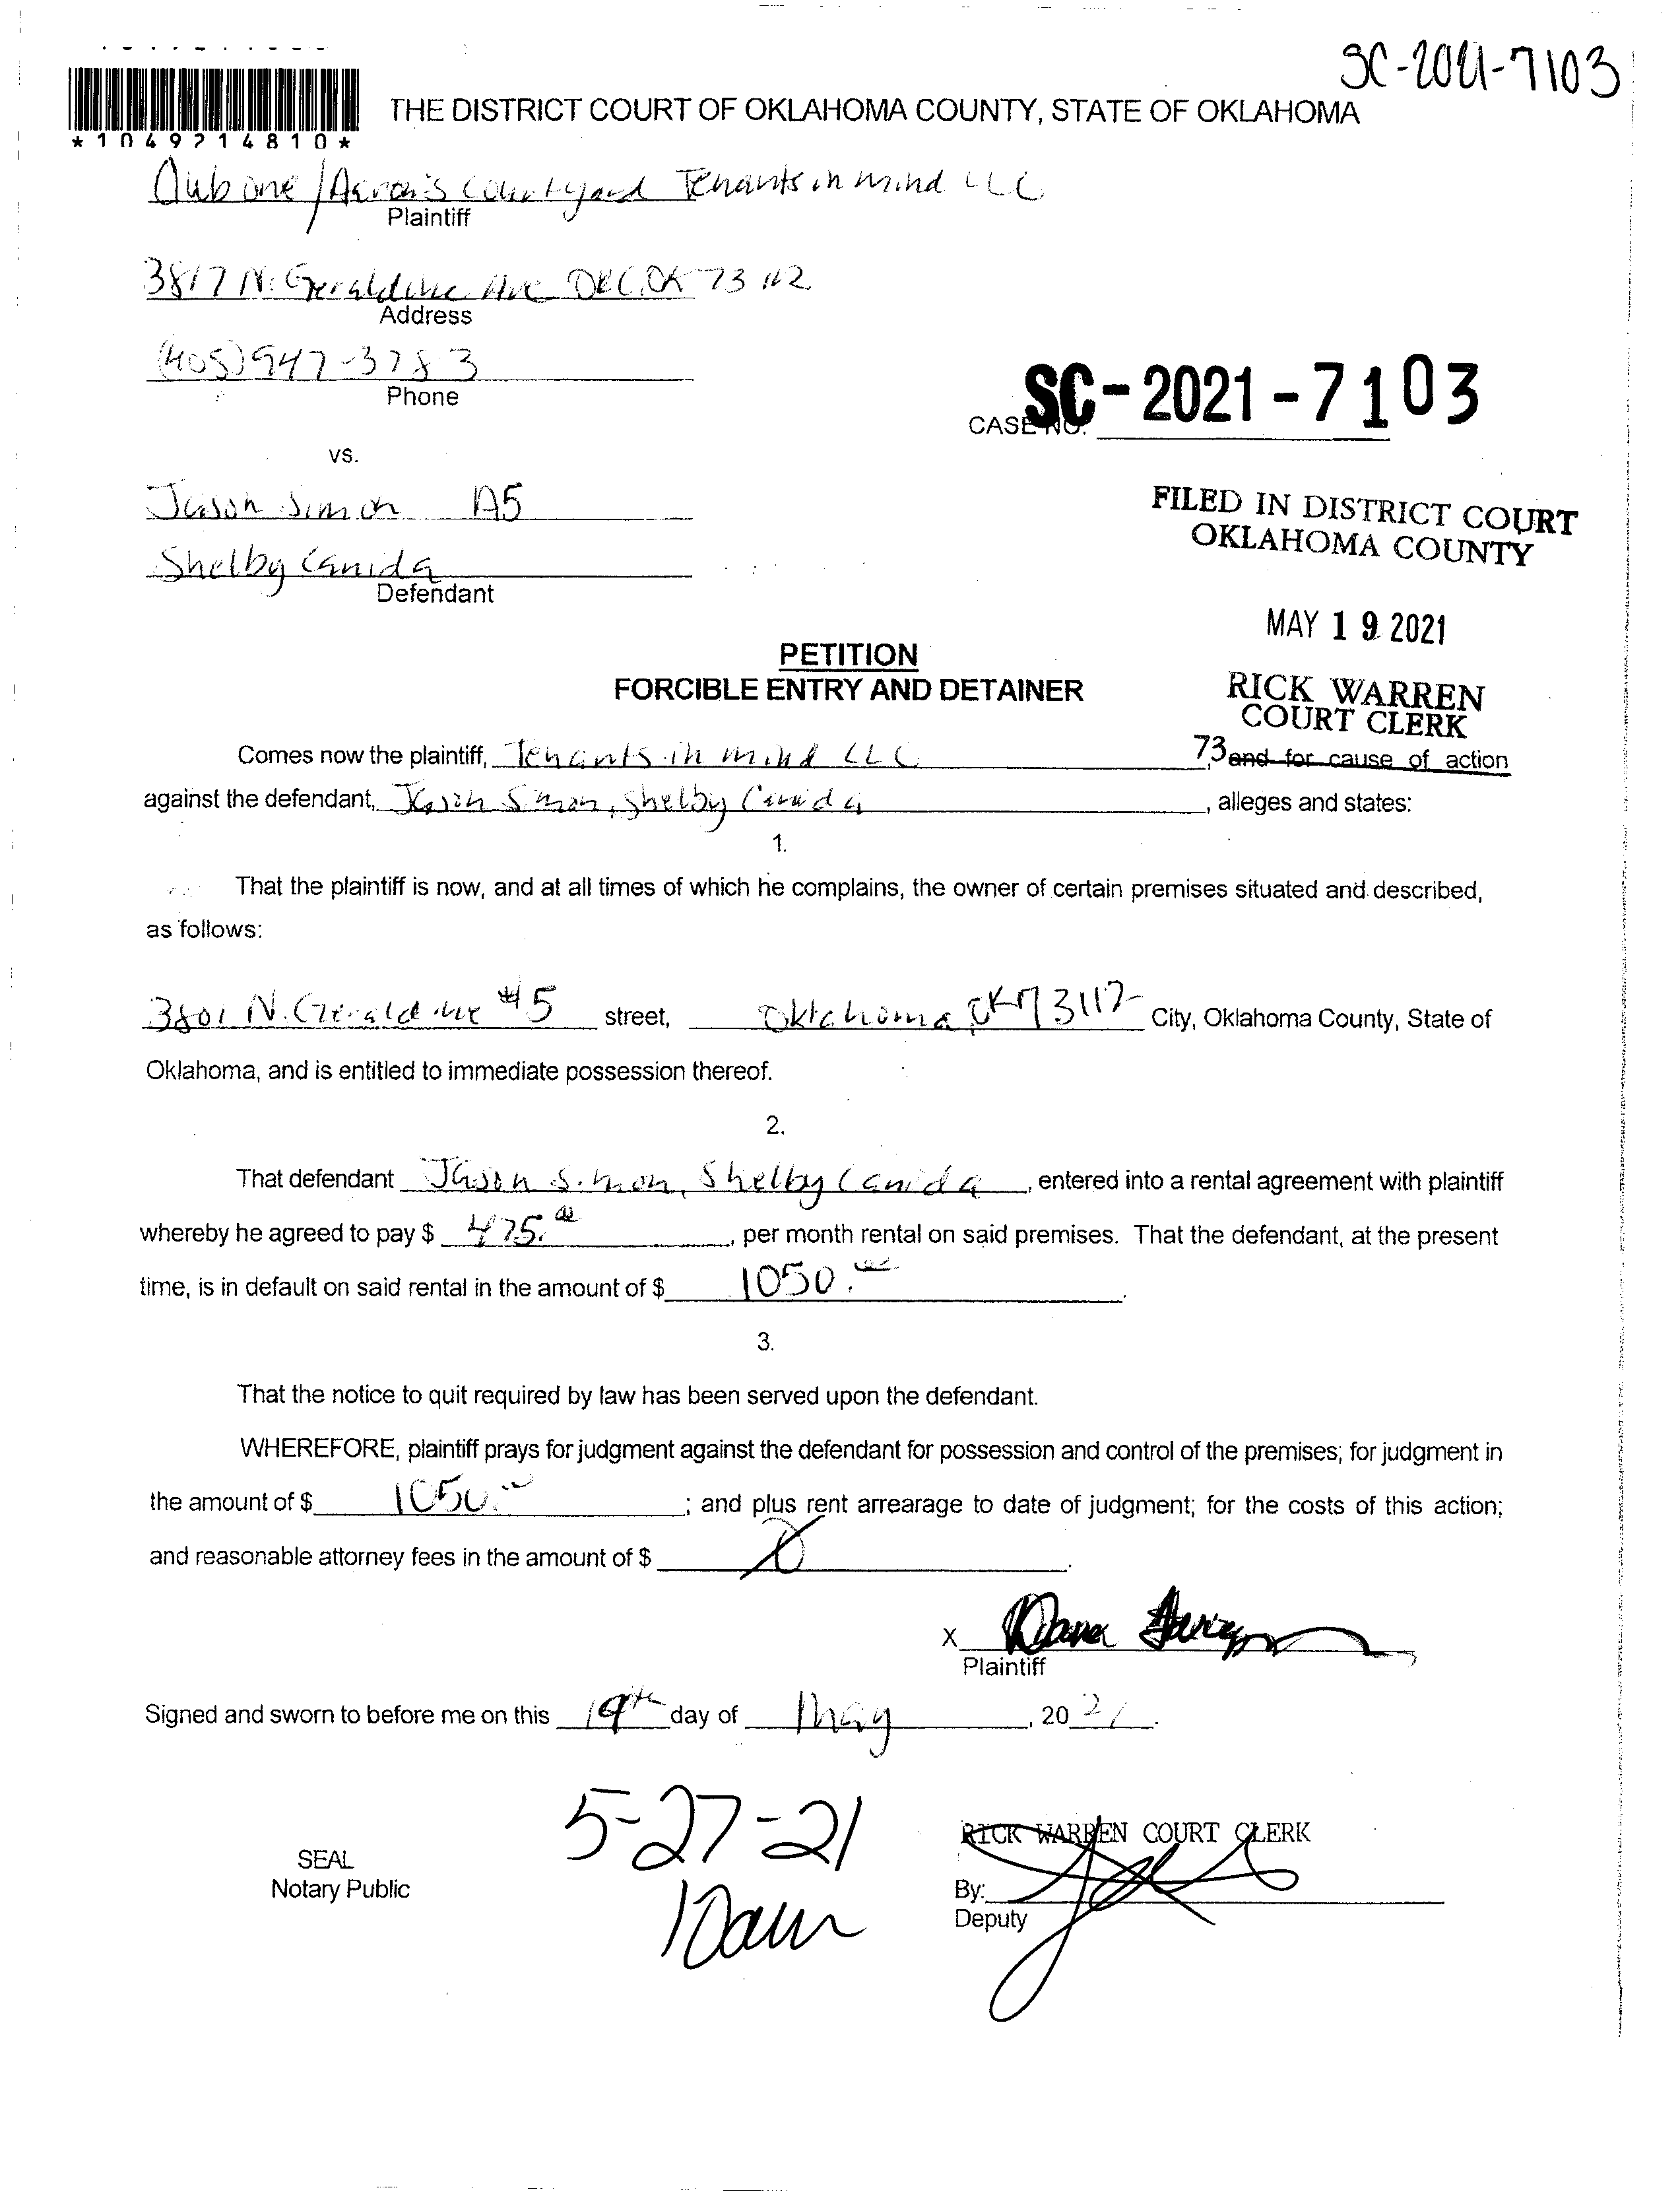 SC-2021-7103
THE DISTRICT COURT OF OKLAHOMA COUNTY, STATE OF OKLAHOMA
*1049214810*
Club one/Aaron's Courtyard Tenants in mind LLC
Plaintiff
3817 N. Geraldine Ave OKC, OK 73112
Address
(405) 947-3783
Phone
SC-2021-7103
CASE NO.
vs.
Jason Simon A5
Shelby Canida
Defendant
FILED IN DISTRICT COURT
OKLAHOMA COUNTY
MAY 19 2021
RICK WARREN
COURT CLERK
PETITION
FORCIBLE ENTRY AND DETAINER
Comes now the plaintiff, Tenants in mind LLC 73 and for cause of action
against the defendant, Jason Simon, Shelby Canida, alleges and states:
1.
That the plaintiff is now, and at all times of which he complains, the owner of certain premises situated and described,
as follows:
3801 N. Geraldine #5 street, Oklahoma, OK 73112 City, Oklahoma County, State of
Oklahoma, and is entitled to immediate possession thereof.
2.
That defendant Jason Simon, Shelby Canida, entered into a rental agreement with plaintiff
whereby he agreed to pay $ 475.00, per month rental on said premises. That the defendant, at the present
time, is in default on said rental in the amount of $ 1050.00.
3.
That the notice to quit required by law has been served upon the defendant.
WHEREFORE, plaintiff prays for judgment against the defendant for possession and control of the premises; for judgment in
the amount of $ 1050.00; and plus rent arrearage to date of judgment; for the costs of this action;
and reasonable attorney fees in the amount of $ 0.
X
Plaintiff
Signed and sworn to before me on this 19th day of May, 2021.
5-27-21
10am
SEAL
Notary Public
RICK WARREN COURT CLERK
By:
Deputy